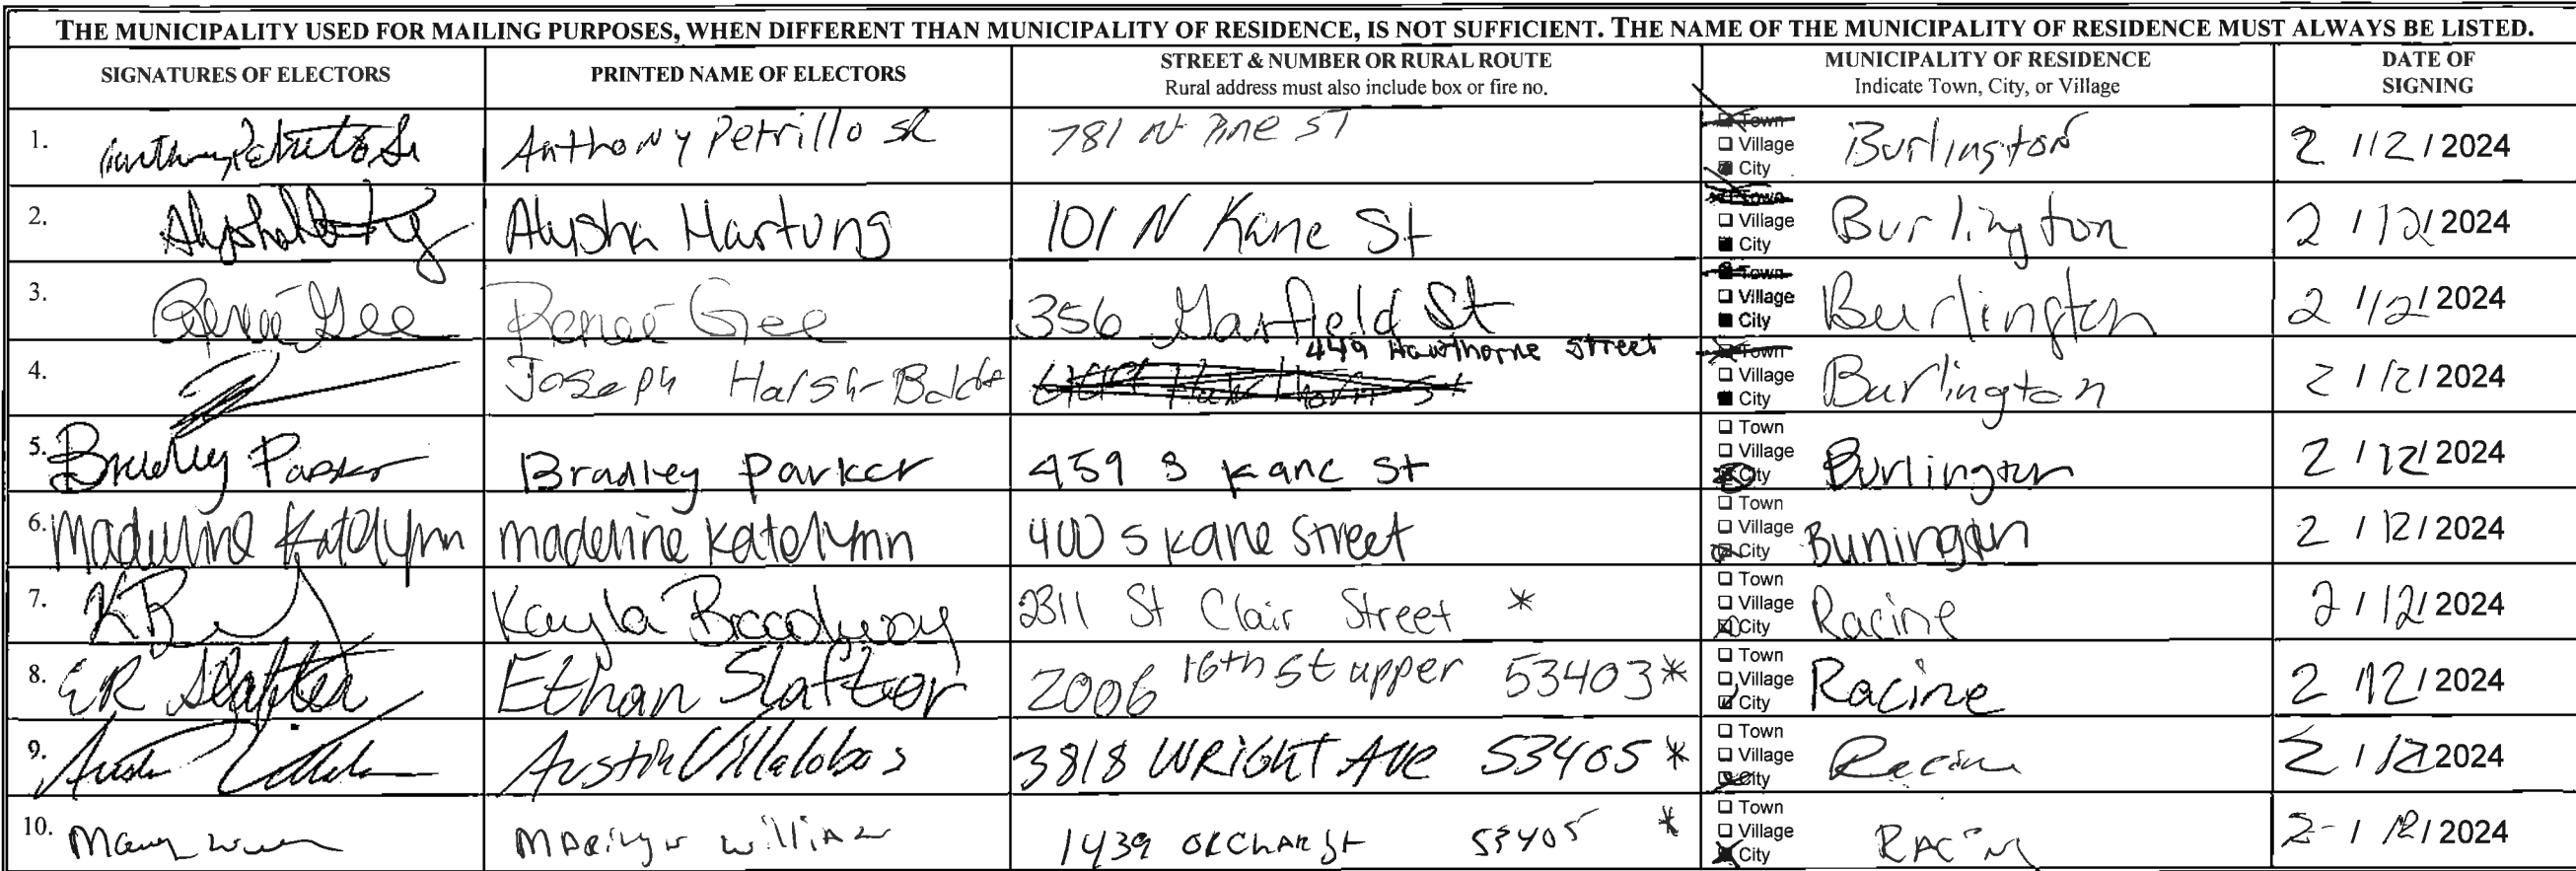 THE MUNICIPALITY USED FOR MAILING PURPOSES, WHEN DIFFERENT THAN MUNICIPALITY OF RESIDENCE, IS NOT SUFFICIENT. THE NAME OF THE MUNICIPALITY OF RESIDENCE MUST ALWAYS BE LISTED.
SIGNATURES OF ELECTORS
PRINTED NAME OF ELECTORS
STREET & NUMBER OR RURAL ROUTE
Rural address must also include box or fire no.
MUNICIPALITY OF RESIDENCE
Indicate Town, City, or Village
DATE OF
SIGNING
1. Anthony Petrillo SR 781 N Pine ST
Town
Village
City
Burlington 2 / 12 / 2024
2. Alysha Hartung 101 N Kane St
Town
Village
City
Burlington 2 / 12 / 2024
3. Reneé Gee Reneé Gee 356 Garfield St
Town
Village
City
Burlington 2 / 12 / 2024
449 Hawthorne Street
4. Joseph Harsh-
Town
Village
City
Burlington 2 / 12 / 2024
5. Bradley Parker Bradley Parker 459 S Kane St
Town
Village
City
Burlington 2 / 12 / 2024
6. Madeline Katelynn madeline Katelynn 400 S Kane Street
Town
Village
City
Burlington 2 / 12 / 2024
7. Kayla Broadway 2311 St Clair Street *
Town
Village
City
Racine 2 / 12 / 2024
8. ER Slatter Ethan Slatter 2006 16th St upper 53403 *
Town
Village
City
Racine 2 / 12 / 2024
9. Austin Villalobos 3818 WRIGHT AVE 53405 *
Town
Village
City
Racine 2 / 12 / 2024
10. Marilyn 1439 ORCHAR St 53405 *
Town
Village
City
RACIN 2 / 12 / 2024